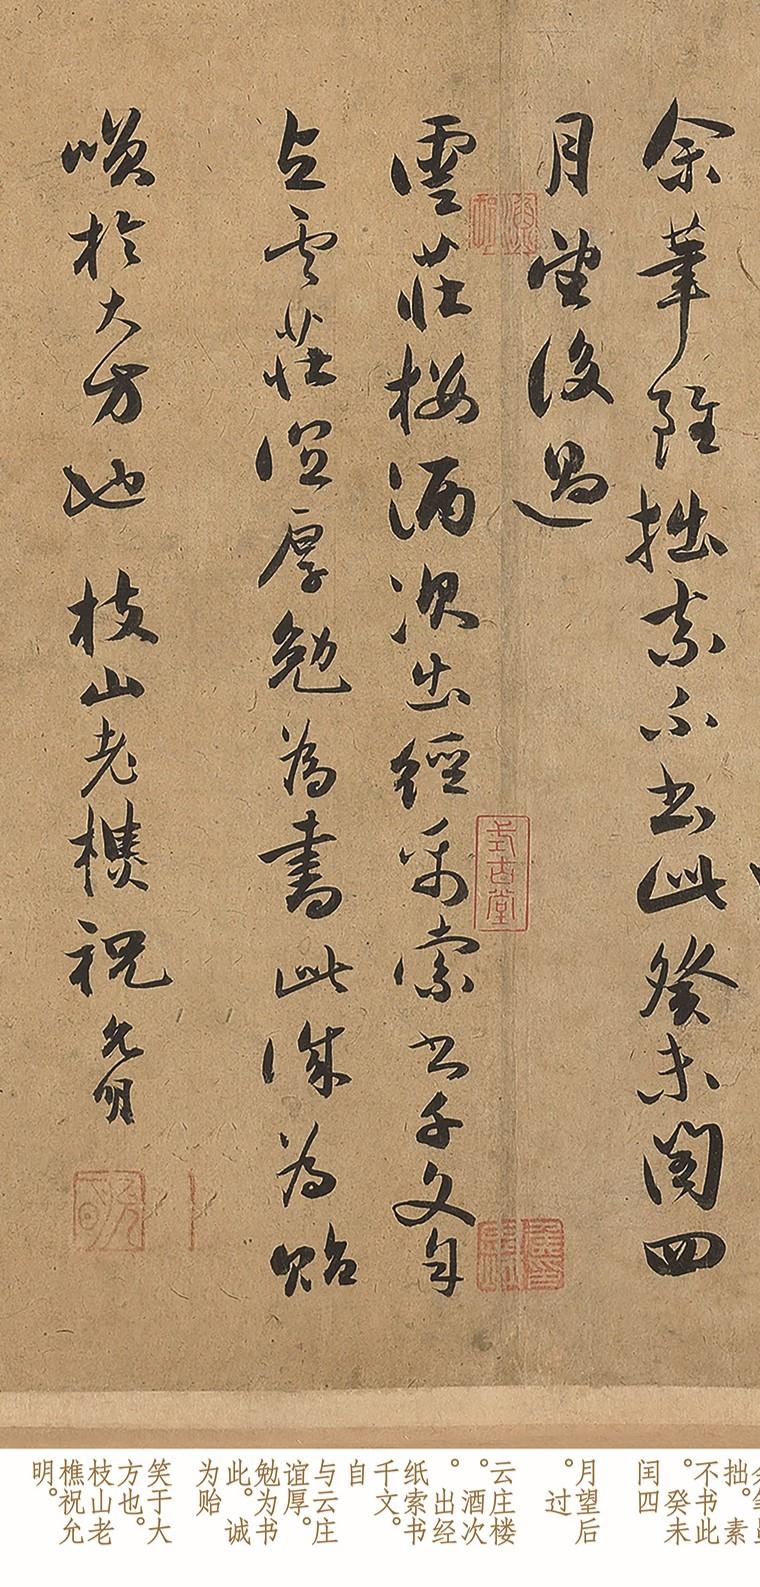 余筆雖拙素不書此癸未閏四
月望後過
雲莊樓酒次出經紙索書千文自
与雲莊誼厚勉為書此誠為貽
咲於大方也 枝山老樵祝允明
式古堂
拙。素
不书此
。癸未
闰四
月望后
。过
云庄楼
。酒次
。出经
纸索书
千文。
自
与云庄
谊厚。
勉为书
此。诚
为贻
笑于大
方也。
枝山老
樵祝允
明。